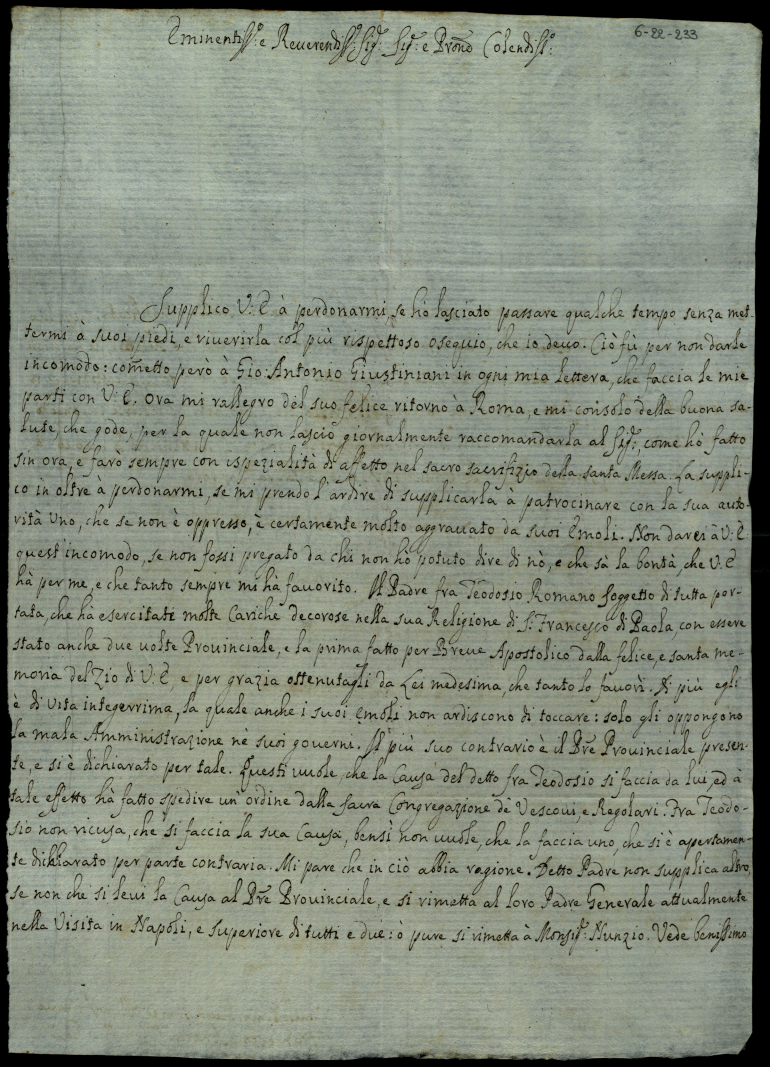 6-22-233
Eminentiss:º e Reverendiss:º Sig:r Sig:r e Prōne Colendiss:º
Supplico V: E à perdonarmi, se hò lasciato passare qualche tempo senza met-
termi à suoi piedi, e riverirla col più rispettoso ossequio, che io devo. Ciò fù per non darle
incomodo: com̄etto però à Gio: Antonio Giustiniani in ogni mia lettera, che faccia le mie
parti con V: E. Ora mi rallegro del suo felice ritorno à Roma, e mi consolo della buona sa-
lute, che gode, per la quale non lascio giornalmente raccomandarla al Sig:r, come hò fatto
sin ora, e farò sempre con ispezialità di affetto nel sacro sacrifizio della santa Messa. La suppli-
co in oltre à perdonarmi, se mi prendo l'ardire di supplicarla à patrocinare con la sua auto-
rità Uno, che se non è oppresso, è certamente molto aggravato da suoi Emoli. Non darei à V: E
quest'incomodo, se non fossi pregato da chi non hò potuto dire di nò, e che sà la bontà, che V. E
hà per me, e che tanto sempre mi hà favorito. Il Padre fra Teodosio Romano soggetto di tutta por-
tata, che hà esercitati molte Cariche decorose nella sua Religione di S. Francesco di Paola, con essere
stato anche due volte Provinciale, e la prima fatto per Breve Apostolico dalla felice, e santa me-
moria del Zio di V: E e per grazia ottenutagli da Lei medesima, che tanto lo favorì. Di più egli
è di vita integerrima, la quale anche i suoi emoli non ardiscono di toccare: solo gli oppongono
la mala Amministrazione nè suoi governi. Il più suo contrario è il Prē Provinciale presen-
te, e si è dichiarato per tale. Questi vuole, che la Causa del detto fra Teodosio si faccia da lui, ed à
tale effetto hà fatto spedire un'ordine dalla sacra Congregazione de Vescovi, e Regolari. Fra Teodo-
sio non ricusa, che si faccia la sua Causa, bensì non vuole, che la faccia uno, che si è apertamen-
te dichiarato per parte contraria. Mi pare che in ciò abbia ragione. Detto Padre non supplica altro,
se non che si levi la Causa al Prē Provinciale, e si rimetta al loro Padre Generale attualmente
nella Visita in Napoli, e Superiore di tutti e due: ò pure si rimetta à Monsig:r Nunzio. Vede benissimo